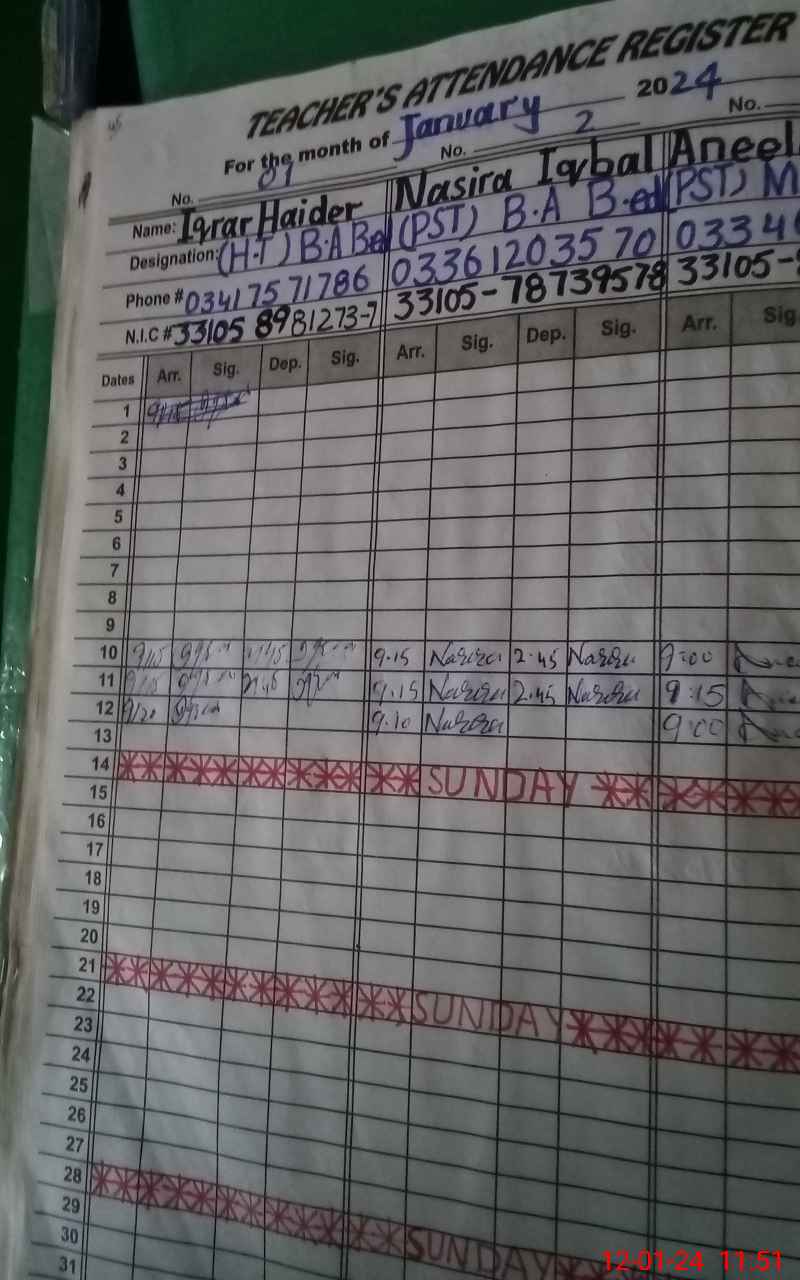 TEACHER'S ATTENDANCE REGISTER
For the month of January 2024
No. 01 No. 2 No.
Name: Iqrar Haider Nasira Iqbal Aneel
Designation: (H.T) B.A Bed (PST) B.A B.ed (PST) M
Phone # 03417571786 03361203570 0334
N.I.C # 33105 8981273-7 33105-78739578 33105-
Dates Arr. Sig. Dep. Sig. Arr. Sig. Dep. Sig. Arr. Sig
1
2
3
4
5
6
7
8
9
10 9/15 9.15 2.45 9:00
11 9/15 9.15 2.45 9:15
12 9/20 9.10 9:00
13
14 SUNDAY
15
16
17
18
19
20
21 SUNDAY
22
23
24
25
26
27
28 SUNDAY
29
30
31
12-01-24 11:51